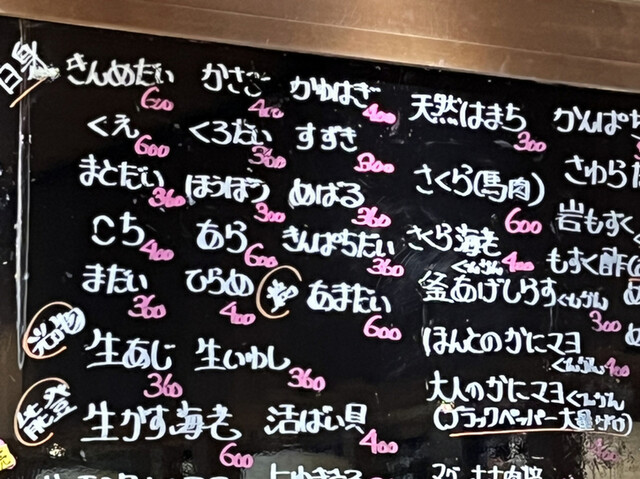 白身
きんめだい 600 かさご 400 かわはぎ 400
くえ 600 くろだい 360 すずき 300
まとだい 360 ほうぼう 300 めばる 360
こち 400 あら 600 きんぱちだい 360
まだい 360 ひらめ 400 あまだい 600
光物
生あじ 360 生いわし 360
能登
生がす海老 600 活ばい貝 400
天然はまち 300
さくら(馬肉) 600
さくら海老 ぐんかん 400
釜あげしらす ぐんかん 300
ほんとのかにマヨ ぐんかん 400
大人のかにマヨ ぐんかん
(ブラックペッパー大量がけ) 400
かんぱち
さわら
岩もずく
もずく酢